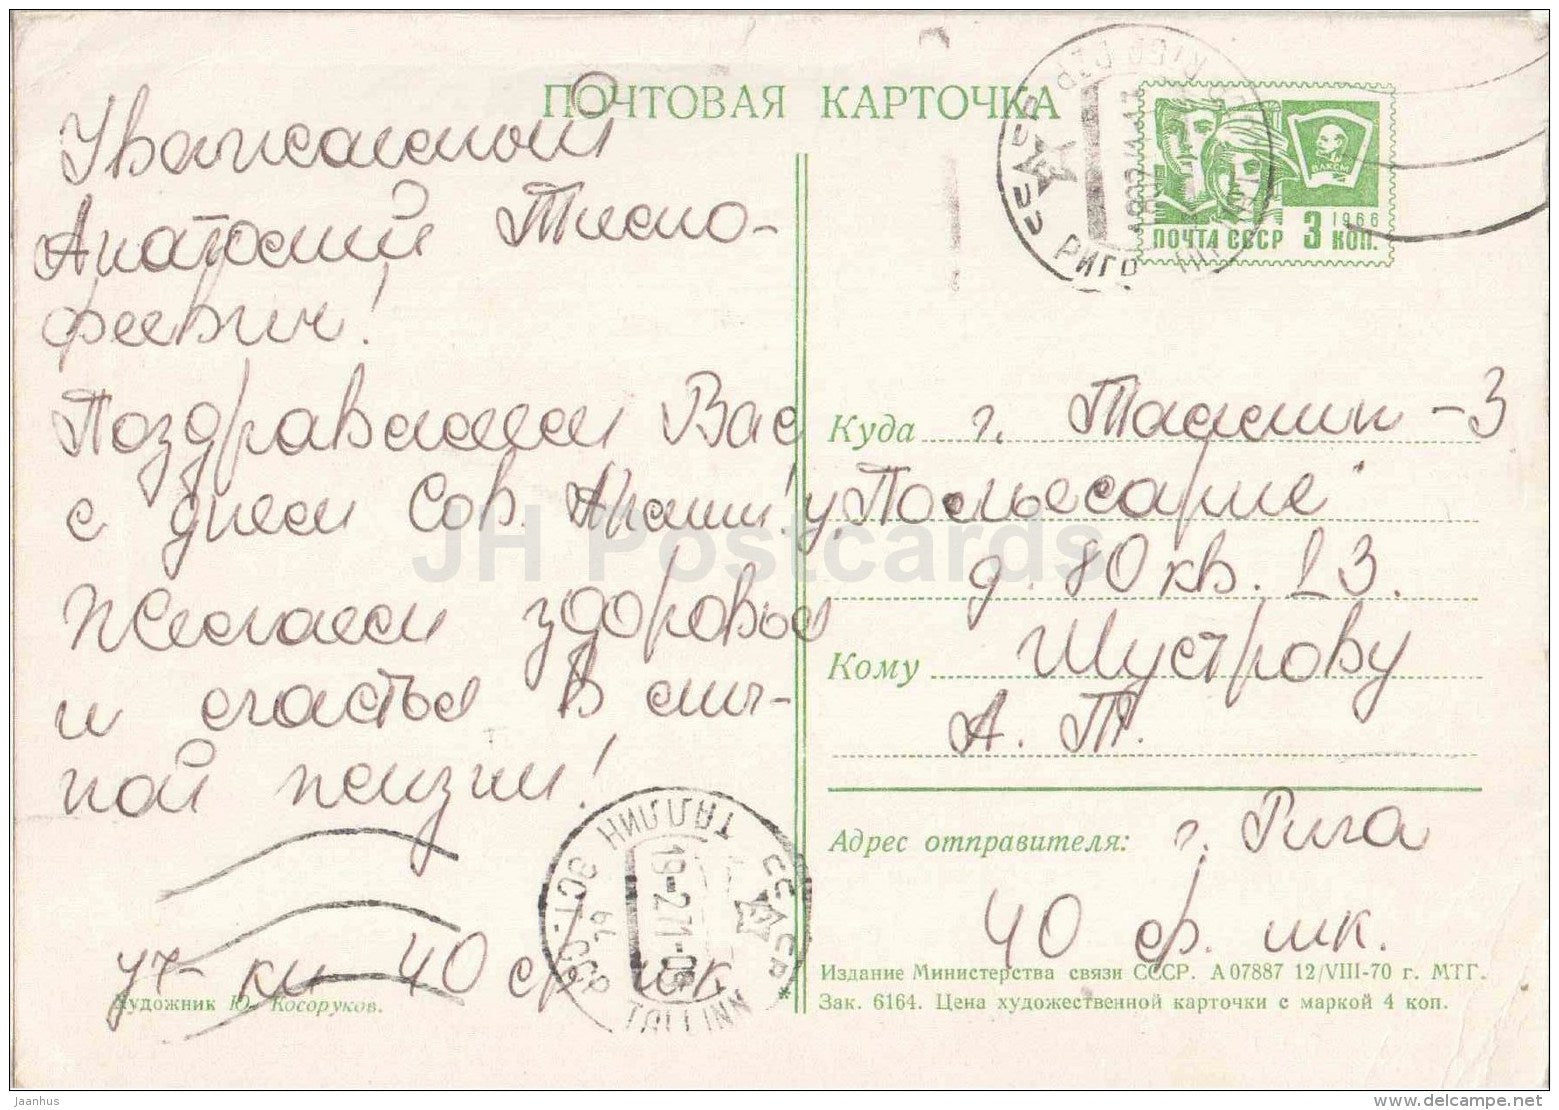 ПОЧТОВАЯ КАРТОЧКА
Уважаемый
Анатолий Тимо-
феевич!
Поздравляем Вас
с днем Сов. Армии!
Желаем здоровья
и счастья в лич-
ной жизни!
уч-ки 40 ср. шк
Художник Ю. Косоруков.
ПОЧТА СССР 3 КОП.
1966
ВЛКСМ
РИГА
СССР
Куда г. Таллин-3
у. Пальясааре
д. 80 кв. 23.
Кому Шустрову
А. Т.
Адрес отправителя: г. Рига
40 ср. шк.
Издание Министерства связи СССР. А 07887 12/VIII-70 г. МТГ.
Зак. 6164. Цена художественной карточки с маркой 4 коп.
ТАЛЛИН СССР
ЭСТ. ССР
19-2 71-08
TALLINN
JH Postcards
Jaanhus
delcampe.net